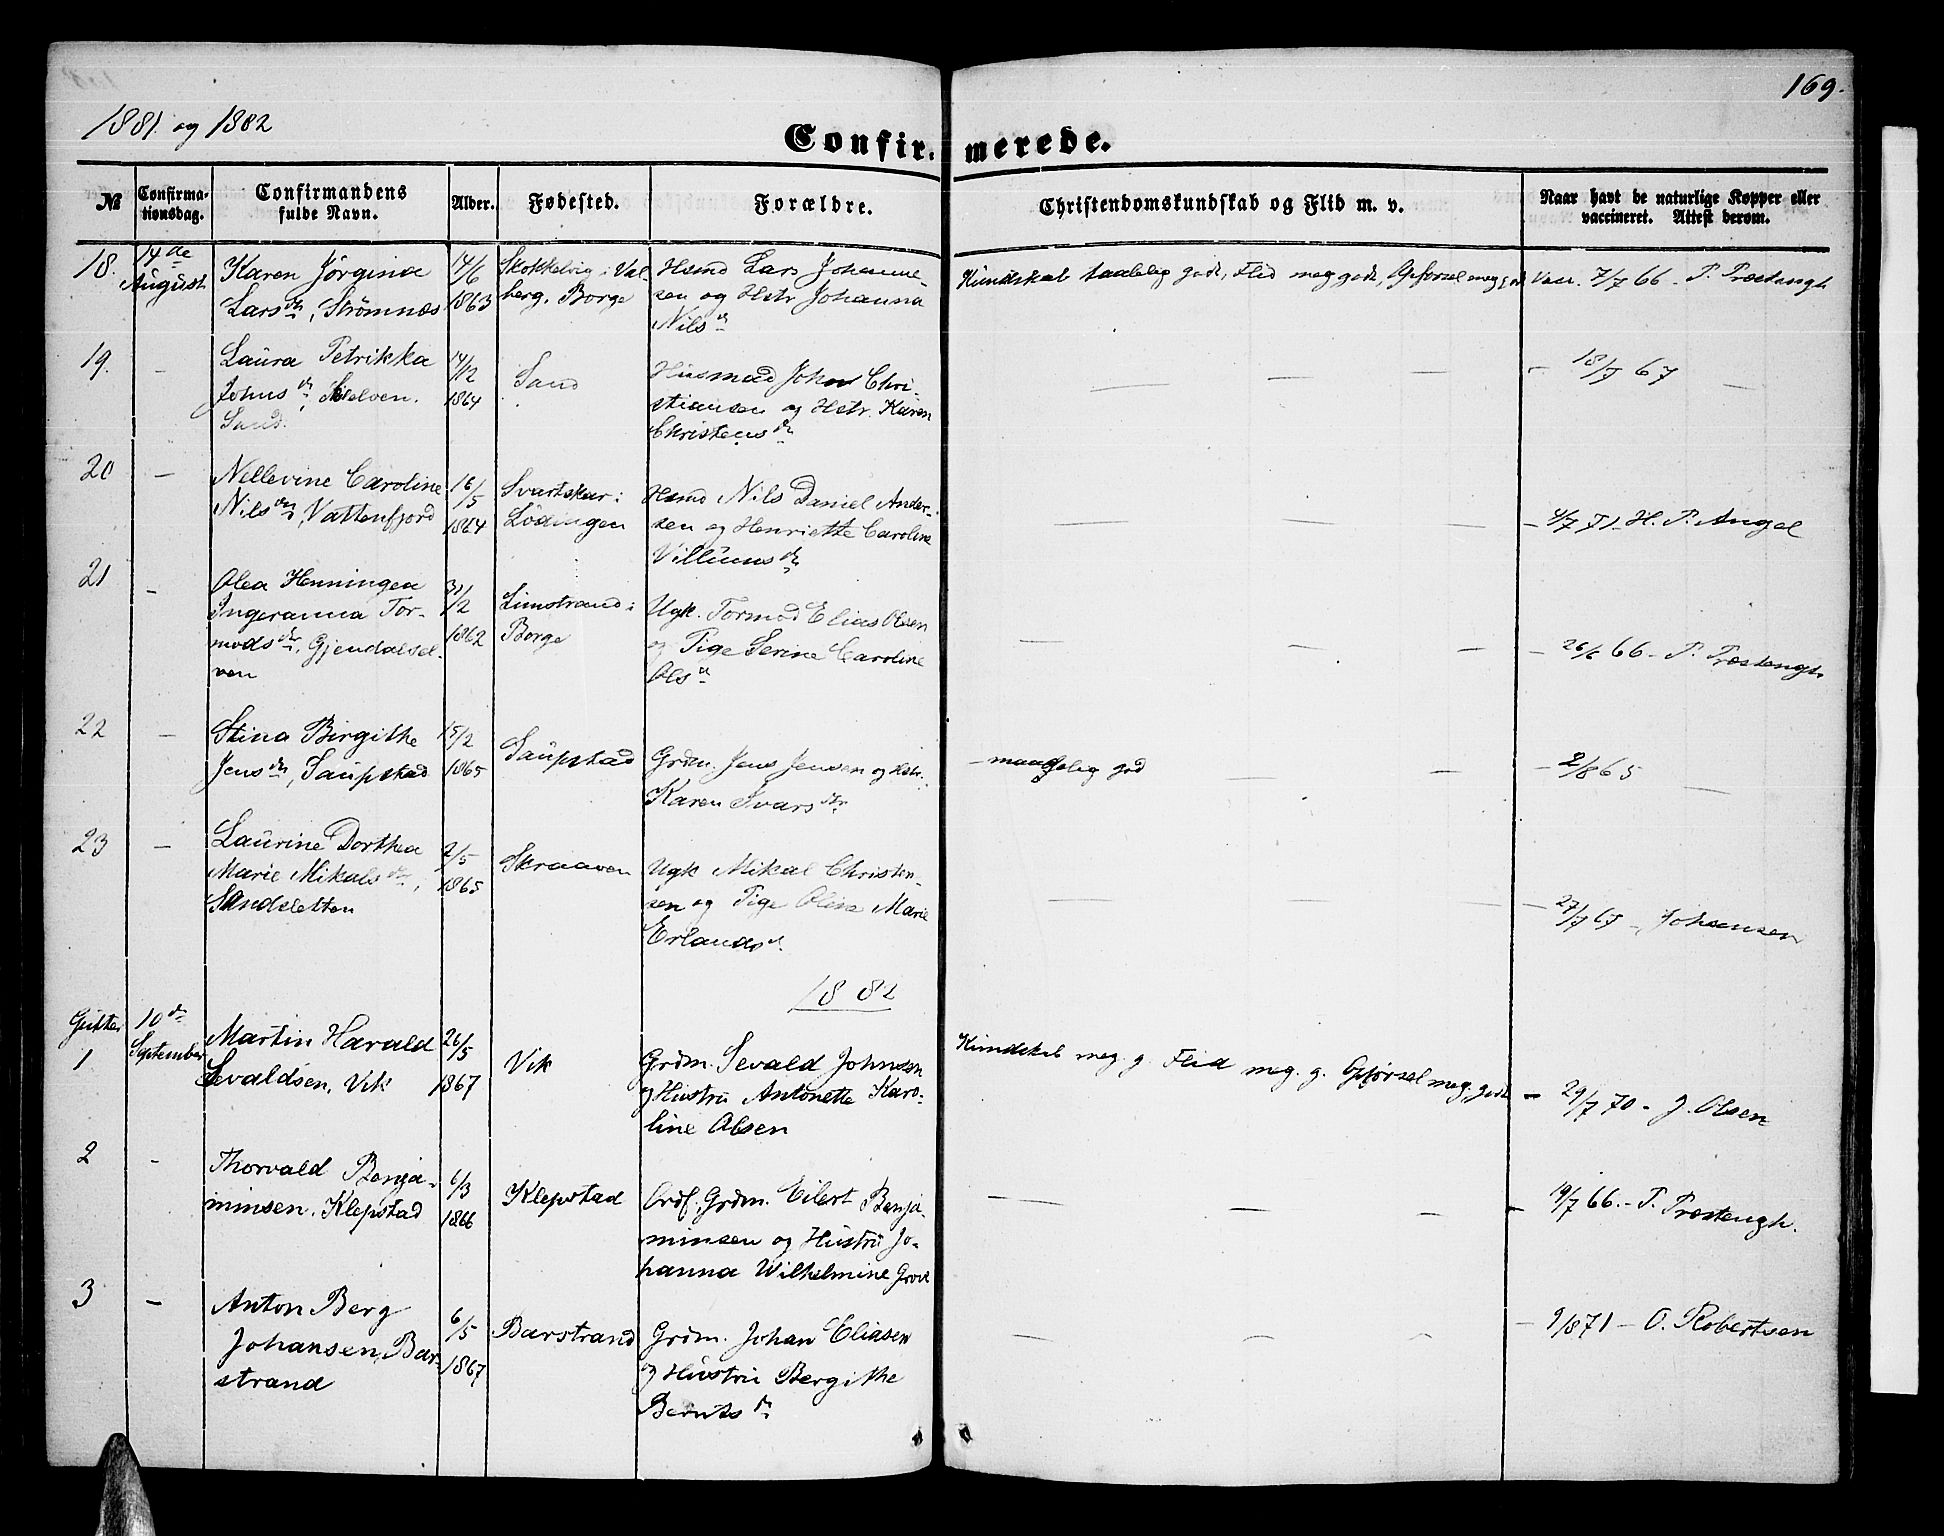 169.
1881 og 1882
Confirmerede.
№
Confirmationsdag.
Confirmandens fulde Navn.
Alder.
Fødested.
Forældre.
Christendomskundskab og Flid m. v.
Naar havt de naturlige Kopper eller vaccineret. Attest derom.
18. 14de August
Karen Jørgina
Larsdr, Strømnæs
14/6 1863
Skokkelvig i Val-
berg, Borge
Hsmd Lars Johanne-
sen og Hstr Johanna
Nilsdr
Kundskab taalelig godt, Flid meg godt, Opførsel meg godt
Vacc. 7/7 66 - P. Præstengh
19. —
Laura Petrikka
Johnsdr, Skelven.
Sand.
14/12 1864
Sand
Husmad John Chri-
stiansen og Hstr. Karen
Christensdr
— — —
- 18/7 67 —
20 —
Nellevine Caroline
Nilsdr, Vattenfjord
16/5 1864
Svartskar i
Lödingen
Hsmd Nils Daniel Ander-
sen og Henriette Caroline
Villumsdr
— — —
- 4/7 71 - H. P. Angel
21 —
Olea Henningea
Ingeranna Tor-
modsdtr, Gjendalsel-
ven
1862
Limstrand i
Borge
Ugk. Tormod Elias Olsen
og Pige Serine Caroline
Olsd
— — —
- 26/6 66 - P. Præstengh
22 —
Stina Birgithe
Jensdr, Saupstad
15/2 1865
Saupstad
Grdm. Jens Jensen og Hstr.
Karen Ivarsdtr
- maadelig god — —
- 2/8 65 —
23 —
Laurine Dorthea
Marie Mikalsdtr,
Sandsletten
2/5 1865
Skraaven
Ugk Mikal Christen-
sen og Pige Oline Marie
Erlandsd.
— — —
- 27/7 67 -, Johansen
1882
Gutter
1 10de September
Martin Harald
Sevaldsen, Vik
26/5 1867
Vik
Grdm. Sevald Johnsen
og Hustru Antonette Karo-
line Olsen
Kundskab meg. g. Flid meg. g. Opførsel meg. godt
- 29/7 70 - J. Olsen
2 -
Thorvald Benja-
minsen, Klepstad
6/3 1866
Klepstad
Ordf. Grdm. Eilert Benja-
minsen og Hustru Jo-
hanna Wilhelmine Grove
— — —
- 19/7 66. - P. Præstengh.
3 —
Anton Berg
Johansen, Bar-
strand
6/5 1867
Barstrand
Grdm. Johan Eliasen
og Hustru Bergithe
Berntsdr
— — —
- 9/8 71 - O. Robertsen